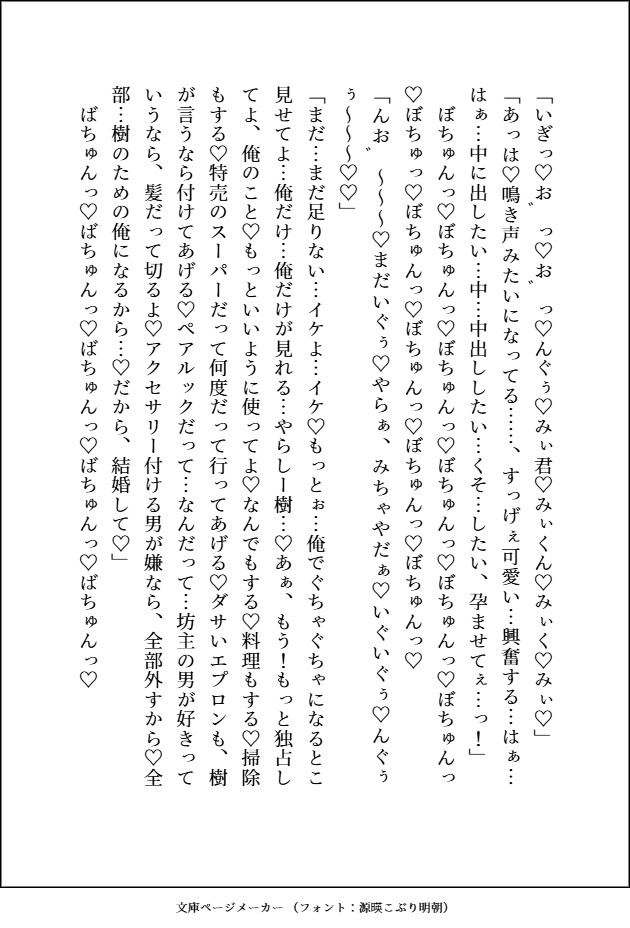 「いぎっ♡お゛っ♡お゛っ♡んぐぅ♡みぃ君♡みぃくん♡みぃく♡みぃ♡」
「あっは♡鳴き声みたいになってる……、すっげぇ可愛い…興奮する…はぁ…
はぁ…中に出したい…中…中出ししたい…くそ…したい、孕ませてぇ…っ！」
　ぼちゅんっ♡ぼちゅんっ♡ぼちゅんっ♡ぼちゅんっ♡ぼちゅんっ♡ぼちゅんっ
♡ぼちゅっ♡ぼちゅんっ♡ぼちゅんっ♡ぼちゅんっ♡ぼちゅんっ♡
「んお゛～～～♡まだいぐぅ♡やらぁ、みちゃやだぁ♡いぐいぐぅ♡んぐぅ
ぅ～～～♡♡」
「まだ…まだ足りない…イケよ…イケ♡もっとぉ…俺でぐちゃぐちゃになるとこ
見せてよ…俺だけ…俺だけが見れる…やらしー樹…♡あぁ、もう！もっと独占し
てよ、俺のこと♡もっといいように使ってよ♡なんでもする♡料理もする♡掃除
もする♡特売のスーパーだって何度だって行ってあげる♡ダサいエプロンも、樹
が言うなら付けてあげる♡ペアルックだって…なんだって…坊主の男が好きって
いうなら、髪だって切るよ♡アクセサリー付ける男が嫌なら、全部外すから♡全
部…樹のための俺になるから…♡だから、結婚して♡」
　ばちゅんっ♡ばちゅんっ♡ばちゅんっ♡ばちゅんっ♡ばちゅんっ♡
文庫ページメーカー（フォント：源暎こぶり明朝）